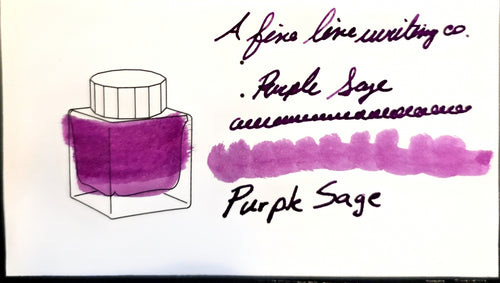 A fine line writing co.
Purple Sage
Purple Sage